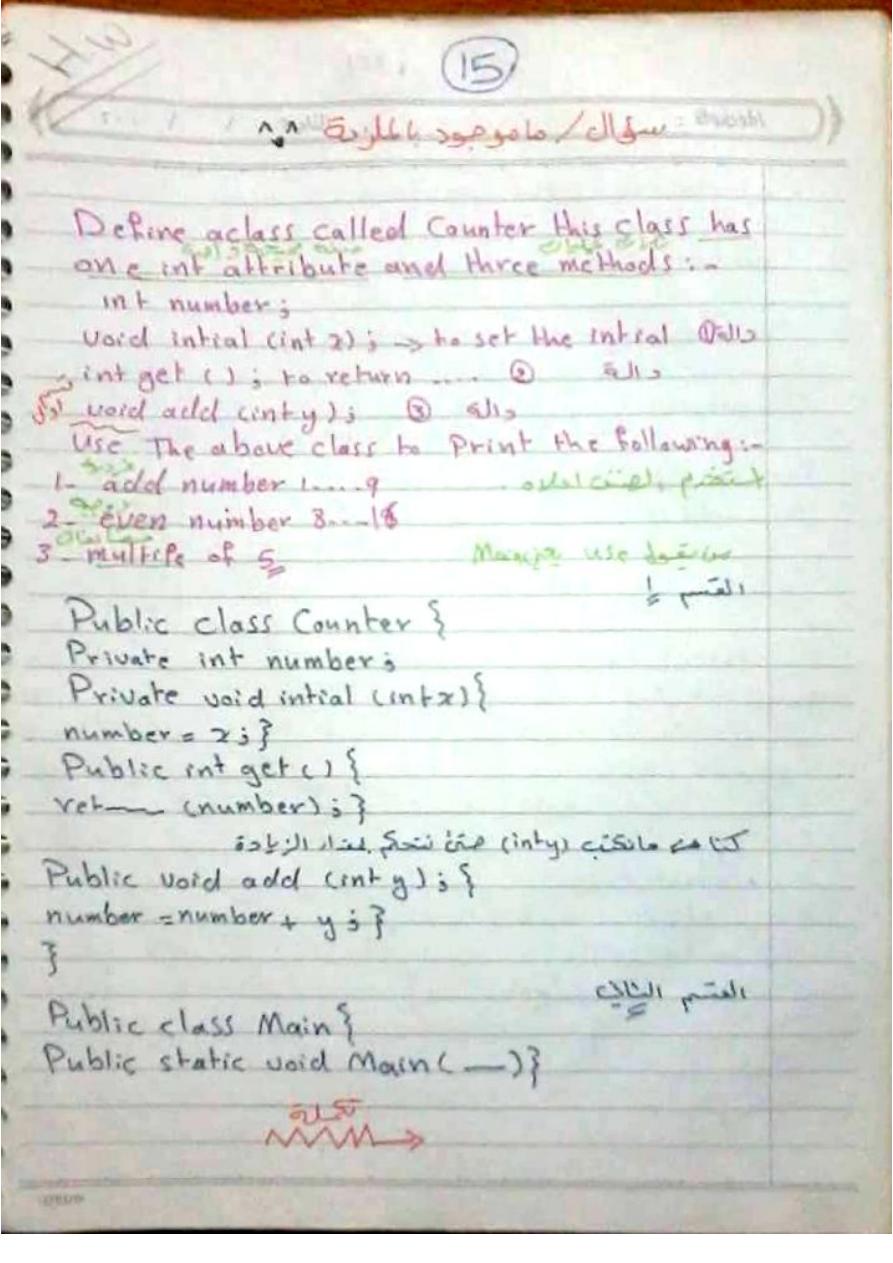 HW
15
سؤال / ماموجود بالملزمة ^^
Define aclass called Counter this class has
one int attribute and three methods :-
int number ;
void intial (int x) ; → to set the intial ① دالة
int get ( ) ; to return .... ② دالة
void add (int y) ; ③ دالة
Use The above class to Print the following :-
1- add number 1.....9
استخدم الصنف اعلاه
2- even number 8...18
3- multiple of 5
من نقول use يعني Main
القسم 1
Public class Counter {
Private int number ;
Private void intial (int x) {
number = x ; }
Public int get ( ) {
ret (number) ; }
مانكتب (int y) حتى نتحكم بمقدار الزيادة
Public void add (int y) ; {
number = number + y ; }
}
القسم الثاني
Public class Main {
Public static void Main ( — ) }
تكملة